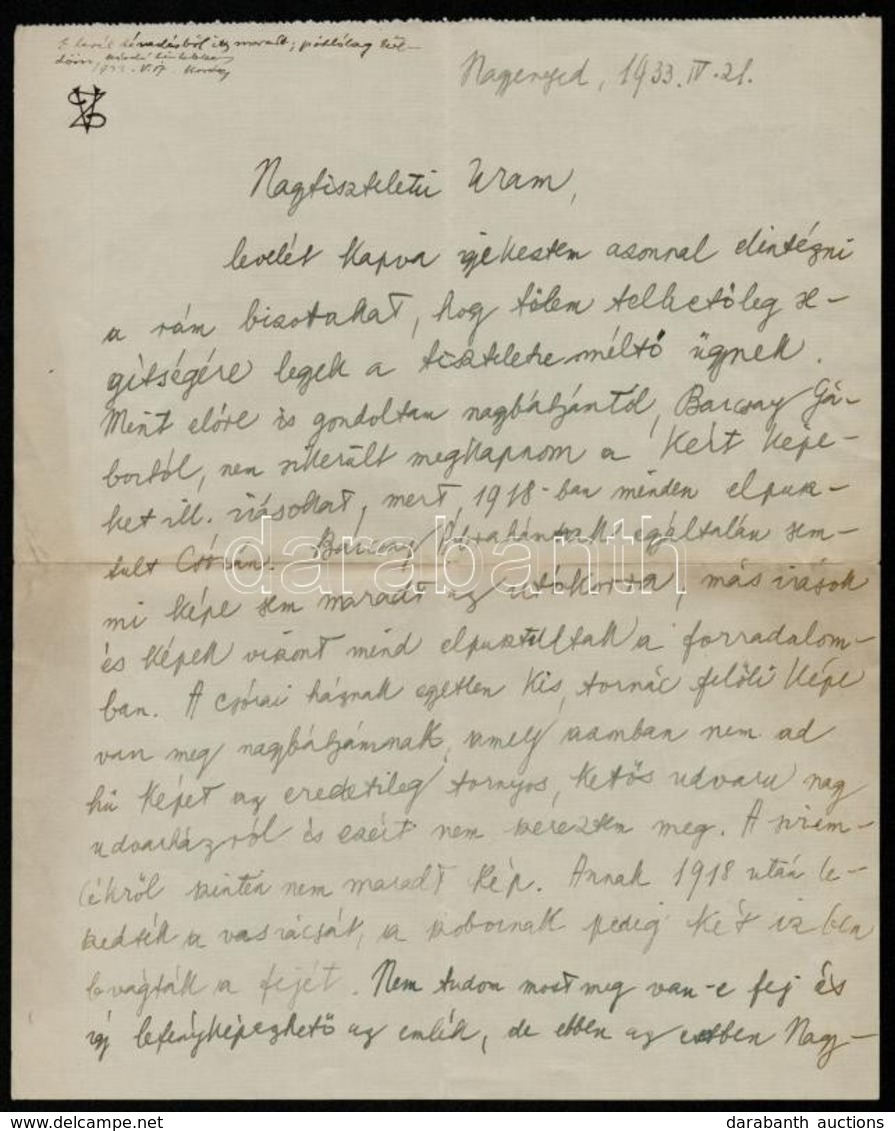 E levél
1933. V. 17.
Nagyenyed, 1933. IV. 21.
Nagytiszteletű Uram,
levelét kapva igyekeztem azonnal elintézni
a rám bizottakat, hogy tőlem telhetőleg se-
gítségére legyek a tiszteletre méltó ügynek.
Mint előre is gondoltam nagybátyámtól, Barcsay Gá-
bortól, nem sikerült megkapnom a kért képe-
ket ill. írásokat, mert 1918-ban minden elpusz-
tult Csórán. Barcsay Ábrahámnak egyáltalán sem-
mi képe sem maradt az utókorra, más írások
és képek viszont mind elpusztultak a forradalom-
ban. A csórai háznak egyetlen kis, tornác felöli képe
van meg nagybátyámnak, amely azomban nem ad
hű képet az eredetileg tornyos, kettős udvaru nagy
udvarházról és ezért nem szereztem meg. A sirem-
lékről szintén nem maradt kép. Annak 1918 után le-
szedték a vasrácsát, a szobornak pedig két izben
levágták a fejét. Nem tudom most meg van-e fej és
így lefényképezhető az emlék, de ebben az esetben Nagy-
darabanth
darabanth auctions